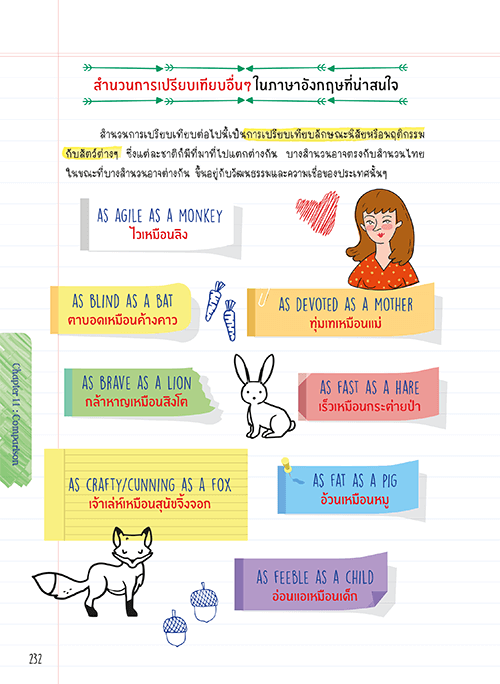 สำนวนการเปรียบเทียบอื่นๆ ในภาษาอังกฤษที่น่าสนใจ
สำนวนการเปรียบเทียบต่อไปนี้เป็นการเปรียบเทียบลักษณะนิสัยหรือพฤติกรรม
กับสัตว์ต่างๆ ซึ่งแต่ละชาติก็มีที่มาที่ไปแตกต่างกัน บางสำนวนอาจตรงกับสำนวนไทย
ในขณะที่บางสำนวนอาจต่างกัน ขึ้นอยู่กับวัฒนธรรมและความเชื่อของประเทศนั้นๆ
AS AGILE AS A MONKEY
ไวเหมือนลิง
AS BLIND AS A BAT
ตาบอดเหมือนค้างคาว
AS DEVOTED AS A MOTHER
ทุ่มเทเหมือนแม่
AS BRAVE AS A LION
กล้าหาญเหมือนสิงโต
AS FAST AS A HARE
เร็วเหมือนกระต่ายป่า
AS CRAFTY/CUNNING AS A FOX
เจ้าเล่ห์เหมือนสุนัขจิ้งจอก
AS FAT AS A PIG
อ้วนเหมือนหมู
AS FEEBLE AS A CHILD
อ่อนแอเหมือนเด็ก
Chapter 11 : Comparison
232